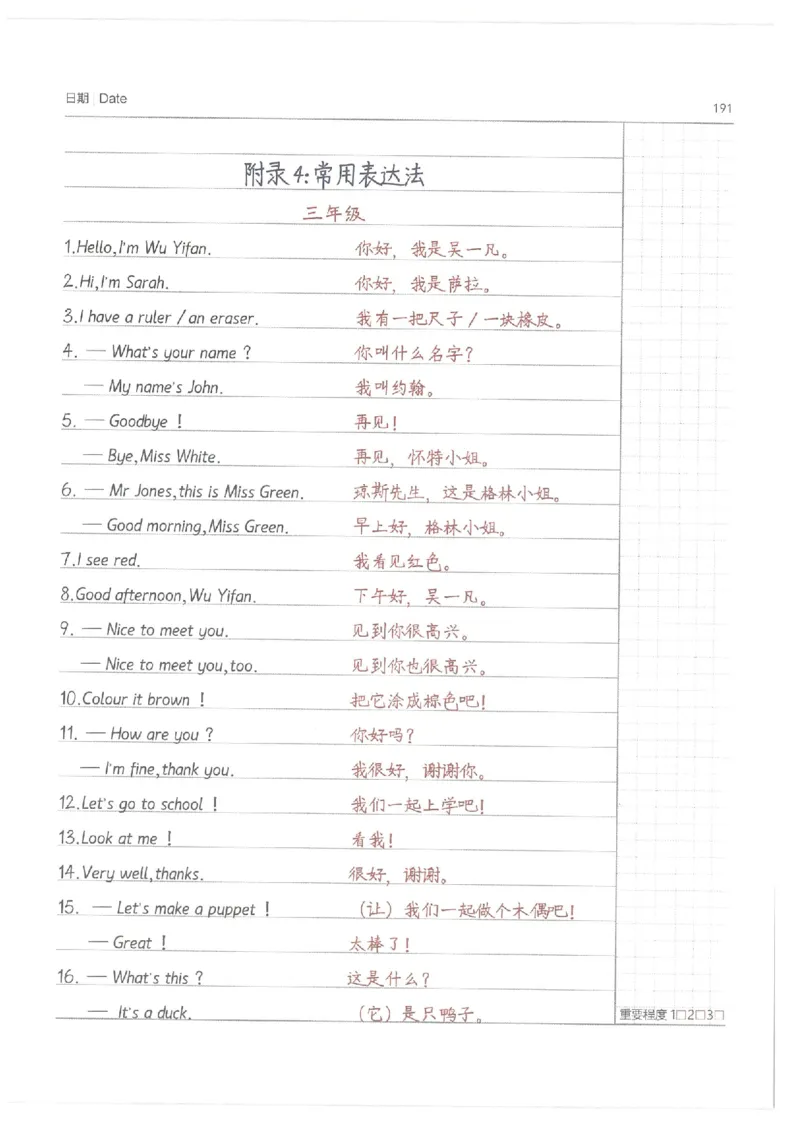 日期 | Date
191
附录4:常用表达法
三年级
1.Hello,I'm Wu Yifan. 你好，我是吴一凡。
2.Hi,I'm Sarah. 你好，我是萨拉。
3.I have a ruler / an eraser. 我有一把尺子 / 一块橡皮。
4. — What's your name ? 你叫什么名字？
— My name's John. 我叫约翰。
5. — Goodbye ! 再见！
— Bye,Miss White. 再见，怀特小姐。
6. — Mr Jones,this is Miss Green. 琼斯先生，这是格林小姐。
— Good morning,Miss Green. 早上好，格林小姐。
7.I see red. 我看见红色。
8.Good afternoon,Wu Yifan. 下午好，吴一凡。
9. — Nice to meet you. 见到你很高兴。
— Nice to meet you,too. 见到你也很高兴。
10.Colour it brown ! 把它涂成棕色吧！
11. — How are you ? 你好吗？
— I'm fine,thank you. 我很好，谢谢你。
12.Let's go to school ! 我们一起上学吧！
13.Look at me ! 看我！
14.Very well,thanks. 很好，谢谢。
15. — Let's make a puppet ! （让）我们一起做个木偶吧！
— Great ! 太棒了！
16. — What's this ? 这是什么？
— It's a duck. （它）是只鸭子。
重要程度 1□2□3□